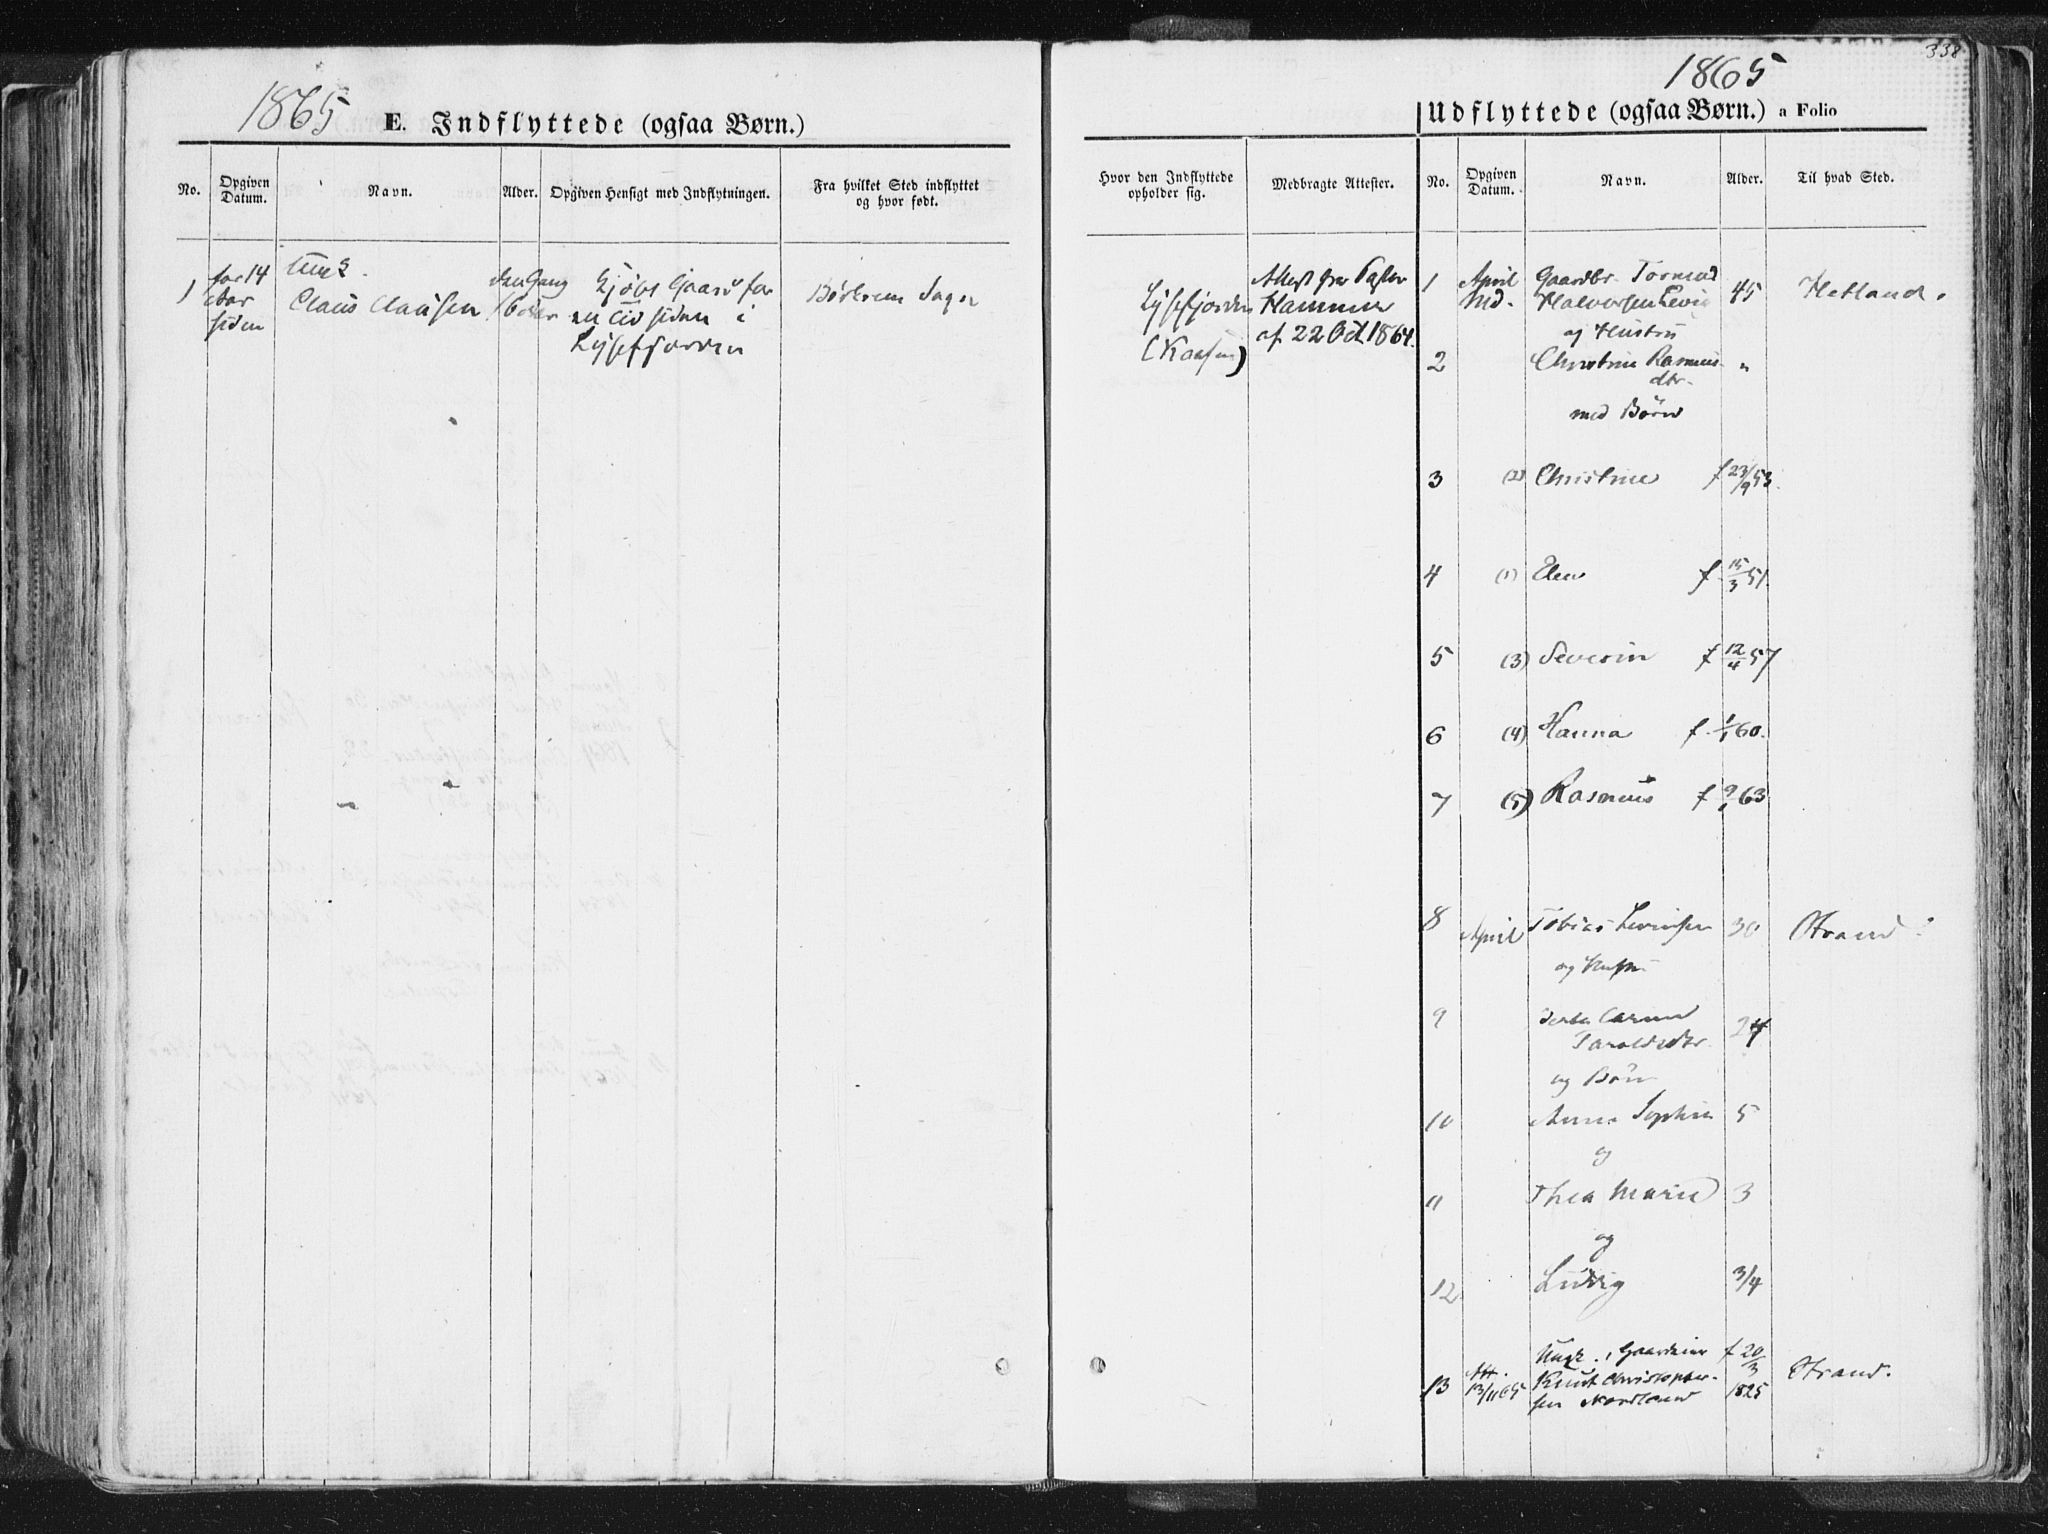 1865
E. Indflyttede (ogsaa Børn.)
No.
Opgiven Datum.
Navn.
Alder.
Opgiven Hensigt med Indflytningen.
Fra hvilket Sted indflyttet og hvor født.
1
for 14
Aar
siden
Claus Clausen
den Gang
Kjøbt Gaard for
en Tid siden i
Lysefjorden
Sogn
1865
338
Udflyttede (ogsaa Børn.) a Folio
Hvor den Indflyttede opholder sig.
Medbragte Attester.
No.
Opgiven Datum.
Navn.
Alder.
Til hvad Sted.
Lysefjorden
Attest fra Pastor
Hammer
af 22 Oct 1864.
1 April Gaardbr. Tormod 45 Hetland.
Md. Halvorsen
og Hustru
2 Christine Rasmus- "
dtr.
med Børn
3 (2) Christine f 23/9 53.
4 (1) Elen f 15/3 51.
5 (3) Severin f 12/4 57
6 (4) Hanna f. 1/1 60.
7 (5) Rasmus f 63
8 April Tobias 30 Strand
og Hustru
9 24
og Børn
10 Anne Sophie 5
og
11 Thea Marie 3
og
12 Ludvig 3/4
13 Att. Ungk., Gaardeier f 20/3 Strand.
13/11 65 Knut Christopher- 1825
sen